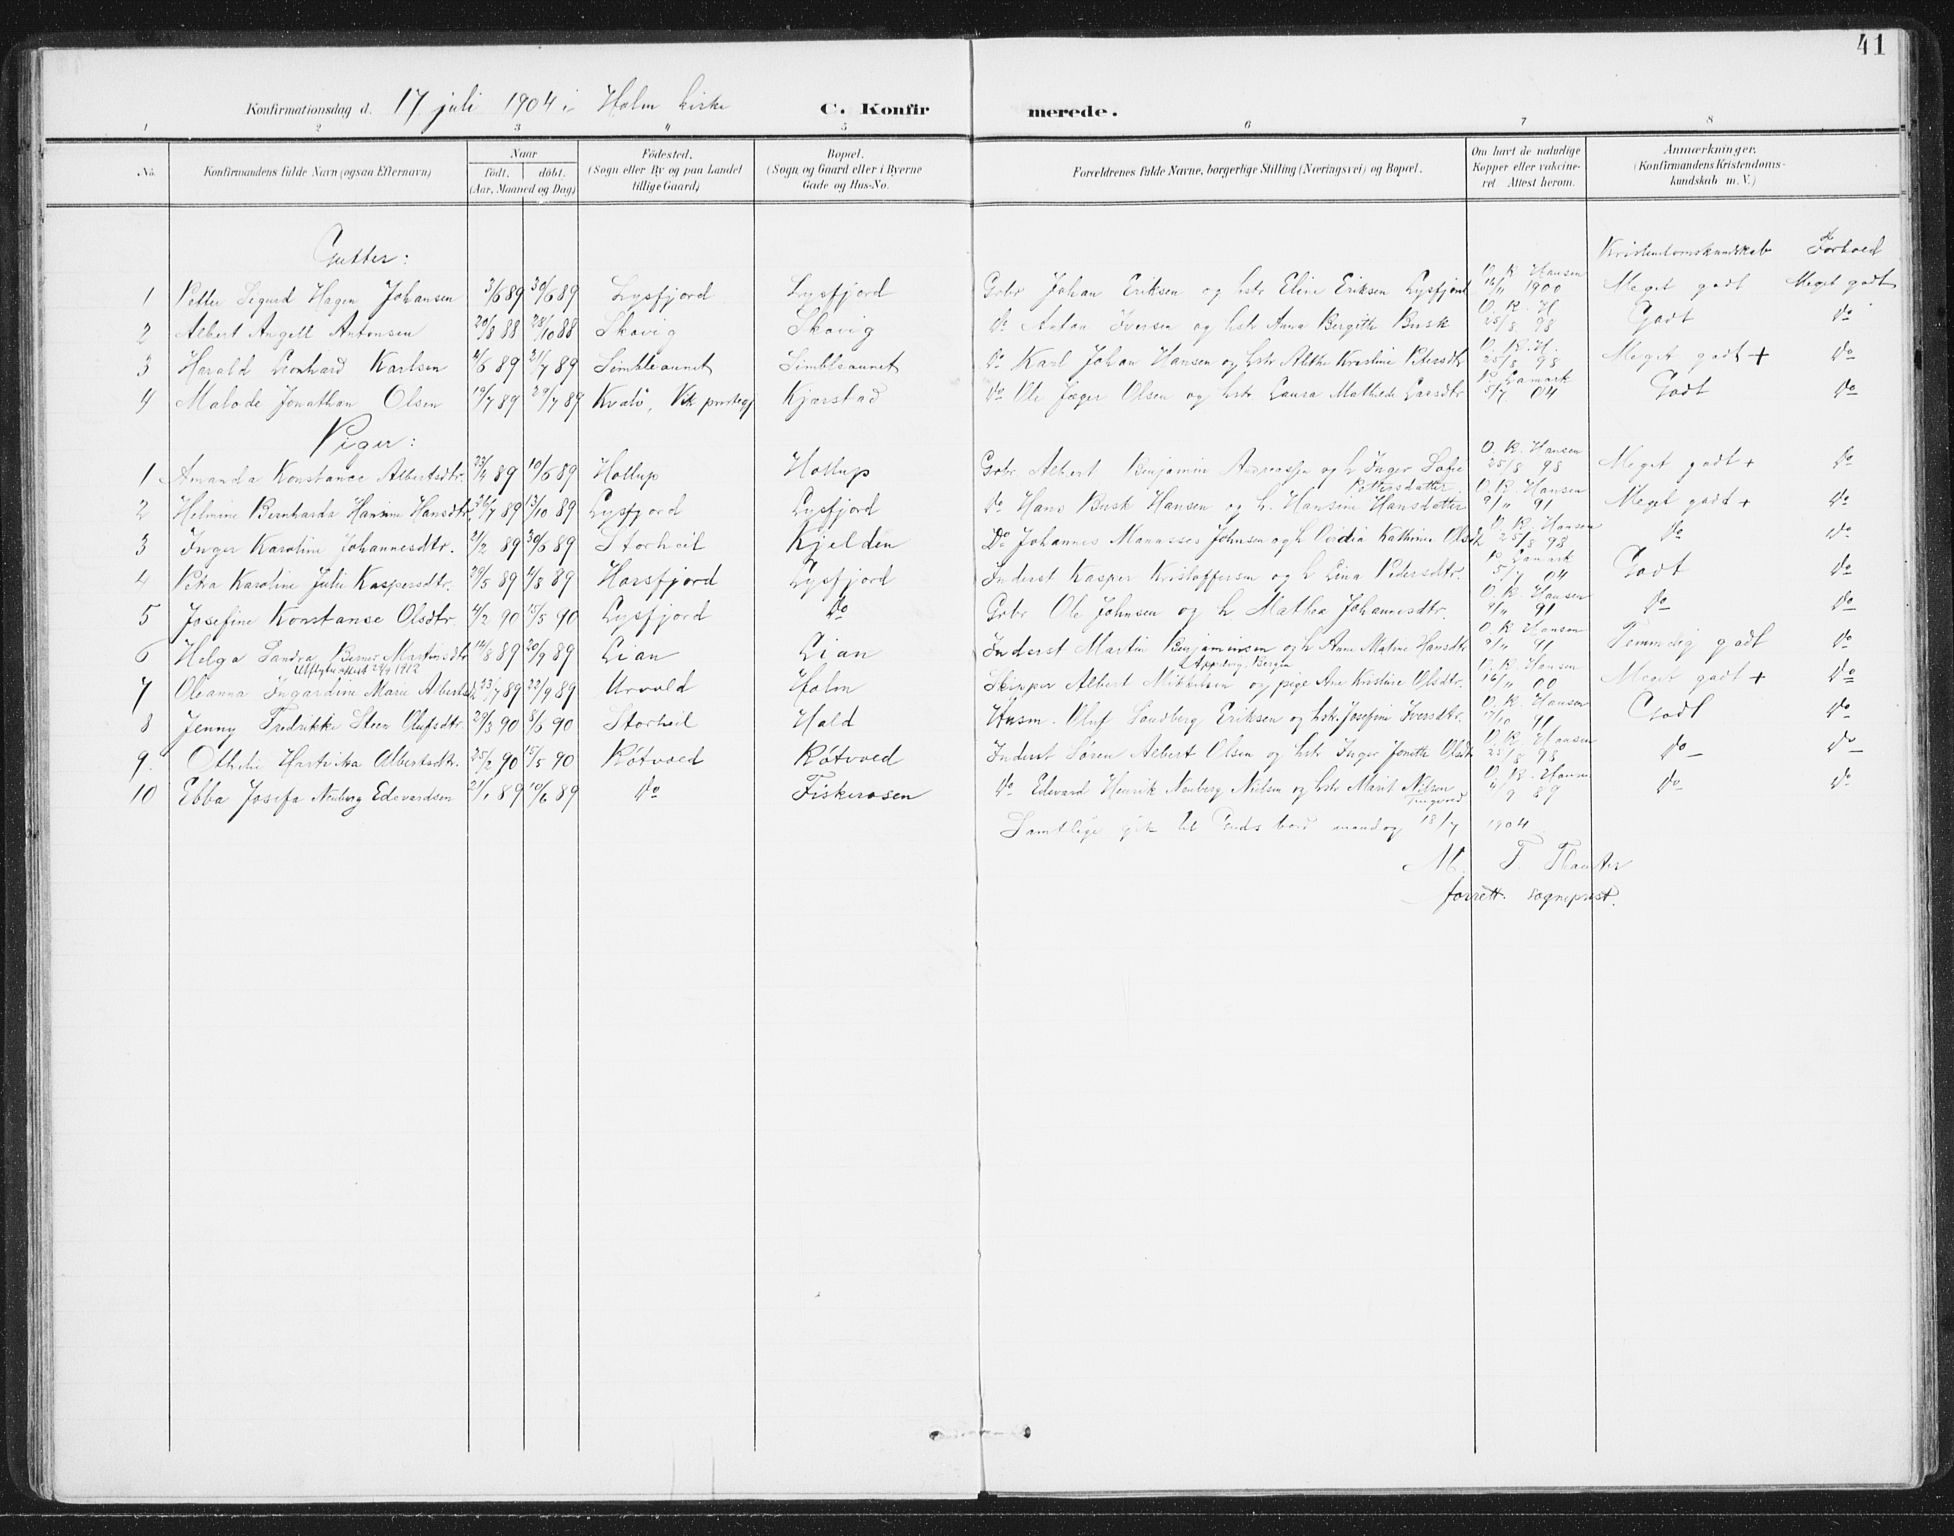 41
Konfirmationsdag d. 17 juli 1904 i Holm kirke C. Konfirmerede.
1 2 3 4 5 6 7 8
No. Konfirmandens fulde Navn (ogsaa Efternavn) Naar født. døbt. (Aar, Maaned og Dag) Fødested. (Sogn eller By og paa Landet tillige Gaard) Bopæl. (Sogn og Gaard eller i Byerne Gade og Hus-No. Forældrenes fulde Navne, borgerlige Stilling (Næringsvei) og Bopæl. Om havt de naturlige Kopper eller vakcineret Attest herom. Anmærkninger. (Konfirmandens Kristendomskundskab m. V.)
Gutter: Kristendomskundskab Forhold
1 Petter Sigurd Hagen Johansen 3/6 89 30/6 89 Lysfjord Lysfjord Grbr Johan Eriksen og hstr Eline Eriksen Lysfjord O. R. Hansen 16/11 1900 Meget godt Meget godt
2 Albert Angell Antonsen 20/8 88 28/10 88 Skovig Skovig do Anton Iversen og hstr Anna Bergitte Busk O. R. H. 25/8 98 Godt do
3 Harald Leonhard Karlsen 4/6 89 21/7 89 Simblesaunet Simblesaunet do Karl Johan Hansen og hstr Alethe Kristine Petersdtr O. R. H. 25/8 98 Meget godt + do
4 Malode Jonathan Olsen 19/7 89 29/7 89 Kvalø, Vik prestegj Kjærstad do Ole Jæger Olsen og hstr Laura Mathilde Larsdtr P. Lamark 5/7 04 Godt do
Piger:
1 Amanda Konstance Albertsdtr. 23/4 89 10/6 89 Hollup Hollup Grbr Albert Benjamin Andreassen og h Inger Sofie Pettersdatter O. R. Hansen 25/8 98 Meget godt + do
2 Helmine Bernharda Hansine Hansdtr 26/7 89 13/10 89 Lysfjord Lysfjord do Hans Busk Hansen og h. Hansine Hansdatter O. R. Hansen 9/11 91 Meget godt + do
3 Inger Karoline Johannesdtr. 21/2 89 30/6 89 Storheil Kjelden Do Johannes Manasses Johnsen og h Ovidia Kathrine Olsdtr O. R. Hansen 25/8 98 do do
4 Petra Karoline Julie Kaspersdtr. 29/5 89 4/8 89 Horsfjord Lysfjord Inderst Kasper Kristoffersen og h Lina Pedersdtr. P. Lamark 5/7 04 Godt do
5 Josefine Konstanse Olsdtr. 4/2 90 15/5 90 Lysfjord do Grbr Ole Johnsen og h Mathea Johannesdtr. O. R. Hansen 9/11 91 do do
6 Helga Sandra Berner Martinsdtr 14/8 89 20/9 89 Lian Lian Inderst Martin Benjaminsen og h Anne Matine Hansdtr O. R. Hansen 9/11 91 Temmelig godt do
7 Oleanna Ingardine Marie Albertsdtr 23/7 89 22/9 89 Urvold Holm Skipper Albert Mikkelsen og pige Ane Kristine Olsdtr. O. R. Hansen 16/11 00 Meget godt + do
8 Jenny Fredrikke Steen Olufsdtr. 29/3 90 8/6 90 Storheil Hald Husm. Oluf Sandberg Eriksen og hstr. Josefine Iversdtr. O. R. Hansen 17/10 91 Godt do
9. Othelie Hartvika Albertsdtr. 25/2 90 15/5 90 Røtvoed Røtvoed Inderst Søren Albert Olsen og hstr Inger Jonette Olsdtr O. R. Hansen 25/8 98 do do
10 Ebba Josefa Neuberg Edevardsen 21/1 89 10/6 89 do Fiskerosen do Edevard Henrik Neuberg Nielsen og hstr Marit Nilsen Tingvold O. R. Hansen 4/9 89 do do
Samtlige gik til Guds bord mandag 18/7 1904
M. T.
forrett. sogneprest.